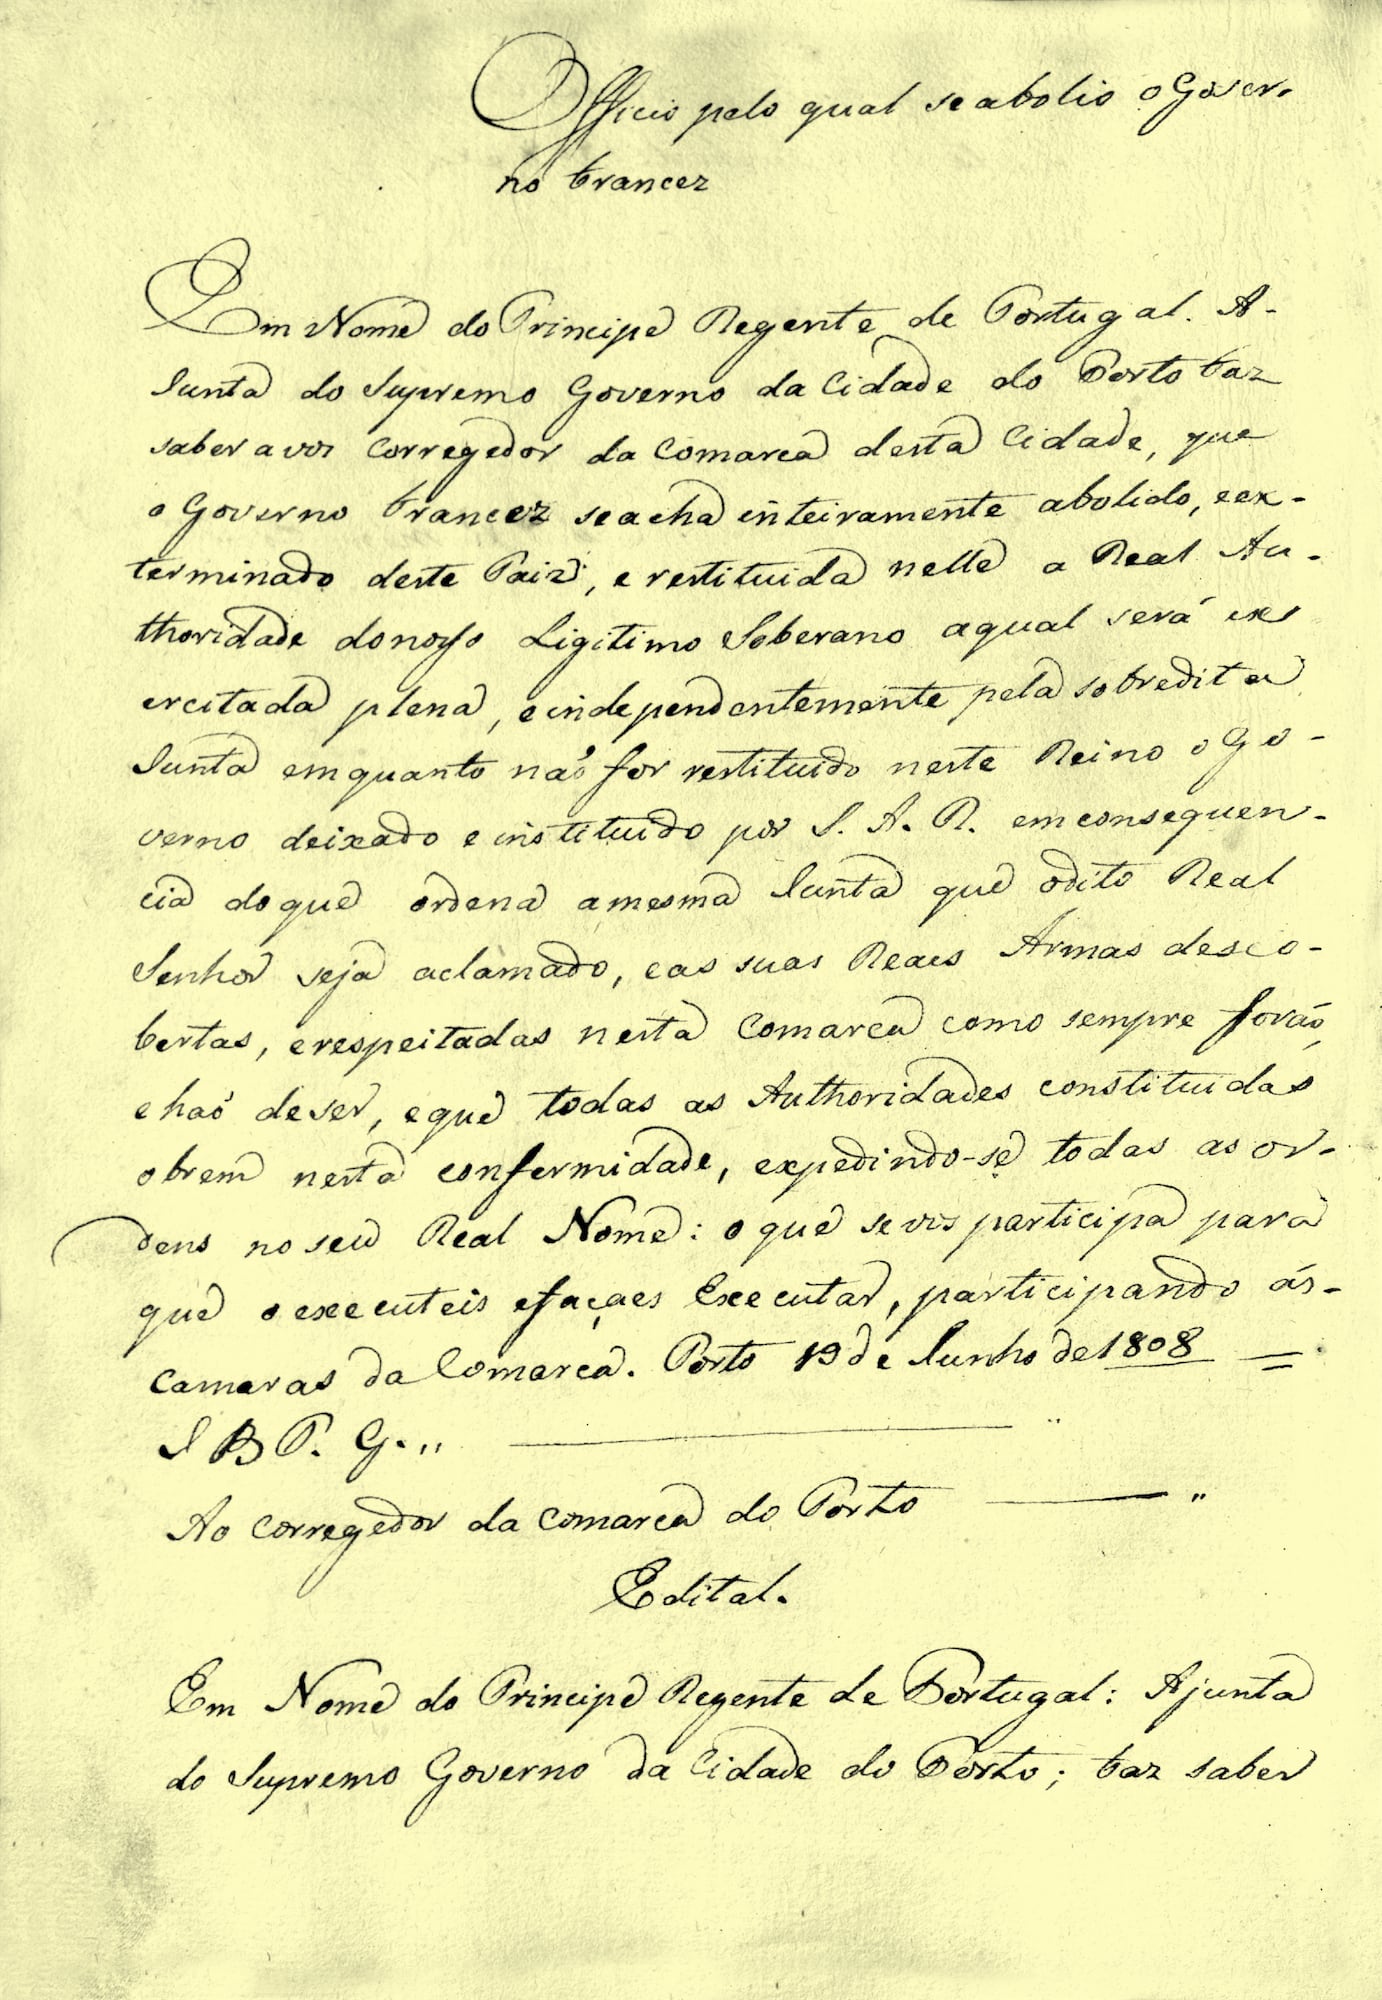 Officio pelo qual se abolio o Gover-
no francez
Em Nome do Principe Regente de Portugal. A-
Junta do Supremo Governo da Cidade do Porto faz
saber a vos Corregedor da Comarca desta Cidade, que
o Governo francez se acha inteiramente abolido, e ex-
terminado deste Paiz, e restituida nelle a Real Au-
thoridade do nosso Ligitimo Soberano a qual será ex
ercitada plena, e independentemente pela sobredita
Junta em quanto não for restituido neste Reino o Go-
verno deixado e instituido por S. A. R. em consequen-
cia do que ordena a mesma Junta que o dito Real
Senhor seja aclamado, e as suas Reaes Armas desco-
bertas, e respeitadas nesta Comarca como sempre forão,
e hao de ser, e que todas as Authoridades constituidas
obrem nesta confermidade, expedindo-se todas as or-
dens no seu Real Nome: o que se vos participa para
que o executeis e façaes Executar, participando ás-
Camaras da Comarca. Porto 19 de Junho de 1808 =
J B P. G.,,
Ao Corregedor da Comarca do Porto "
Edital.
Em Nome do Principe Regente de Portugal: A junta
do Supremo Governo da Cidade do Porto; faz saber